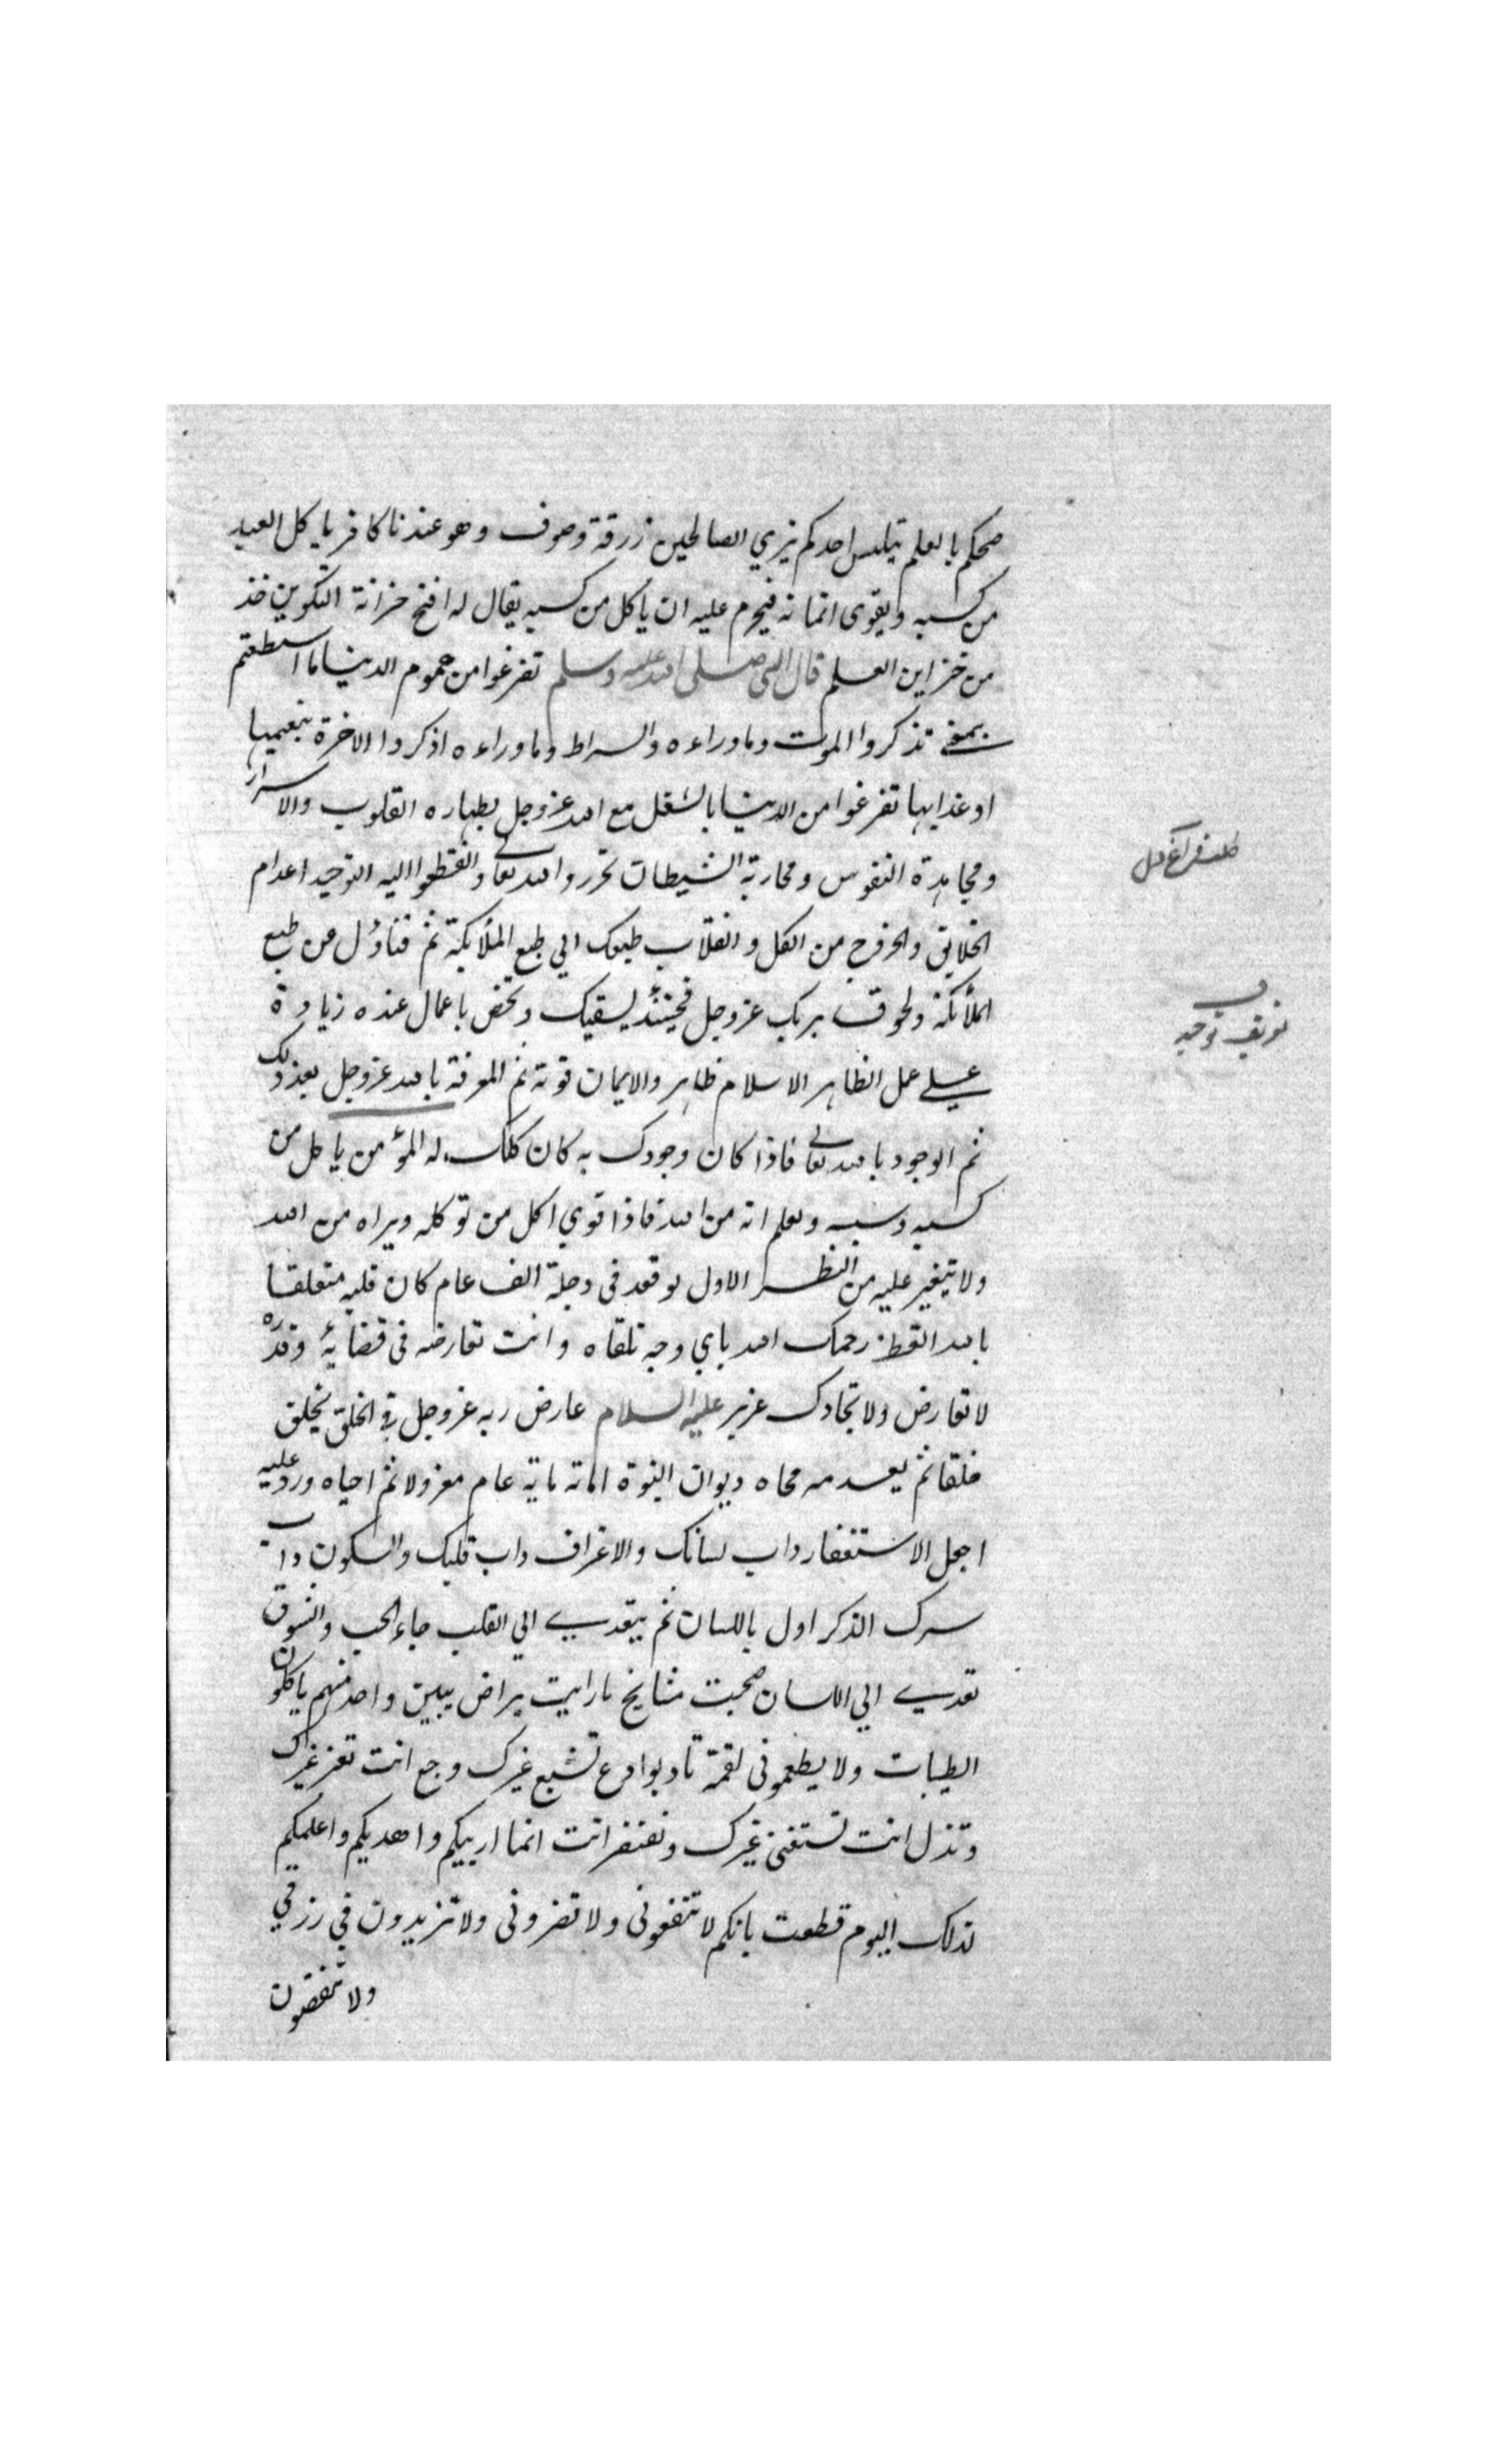 صحكم بالعلم يتلبس احدكم بزي الصالحين زرقة وصوف وهو عندنا كافر ياكل العبد
من كسبه ويقوى ايمانه فيحرم عليه ان ياكل من كسبه يقال له افتح خزانة التكوين خذ
من خزاين العلم قال النبي صلى الله عليه وسلم تفرغوا من هموم الدنيا ما استطعتم
بمعنى تذكروا الموت وما وراءه والسراط وما وراءه اذكروا الاخرة بنعيمها
او عذابها تفرغوا من الدنيا بالشغل مع الله عز وجل بطهاره القلوب والاسرار
ومجاهدة النفوس ومحاربة الشيطان تحرروا لله تعالى وانقطعوا اليه التوحيد اعدام
الخلايق والخروج من الكل وانقلاب طبعك الي طبع الملائكة ثم فناؤك عن طبع
الملائكة ولحوقك بربك عز وجل فحينئذ يسقيك وتخص باعمال عنده زيادة
على عمل الظاهر الاسلام ظاهر والايمان قوته ثم المعرفة بالله عز وجل بعد ذلك
ثم الوجود بالله تعالى فاذا كان وجودك به كان كلك له المؤمن ياكل من
كسبه وسببه ويعلم انه من الله فاذا قوي اكل من توكله ويراه من الله
ولا يتغير عليه من النظر الاول لو قعد في دجلة الف عام كان قلبه متعلقا
بالله القط رحمك الله باي وجه تلقاه وانت تعارضه في قضايه وقدره
لا تعارض ولا تجادل عزير عليه السلام عارض ربه عز وجل في الخلق يخلق
خلقا ثم يعدمه محاه ديوان النبوة اماته ماية عام معزولا ثم احياه ورد عليه
اجعل الاستغفار داب لسانك والاعتراف داب قلبك والسكون داب
سرك الذكر اول باللسان ثم يتعدى الي القلب جاء الحب والشوق
تعدى الي اللسان صحبت مشايخ ما رايت بياض واحد منهم ياكلون
الطيبات ولا يطعموني لقمة تادبوا تشبع غيرك وجع انت تعز غيرك
وتذل انت تستغني غيرك وتفتقر انت انما اربيكم واهديكم واعلمكم
لذلك اليوم قطعت بانكم لا تنفعوني ولا تضروني ولا تزيدون في رزقي
ولا تنقصون
طلب فراغ دل
تعريف توحيد